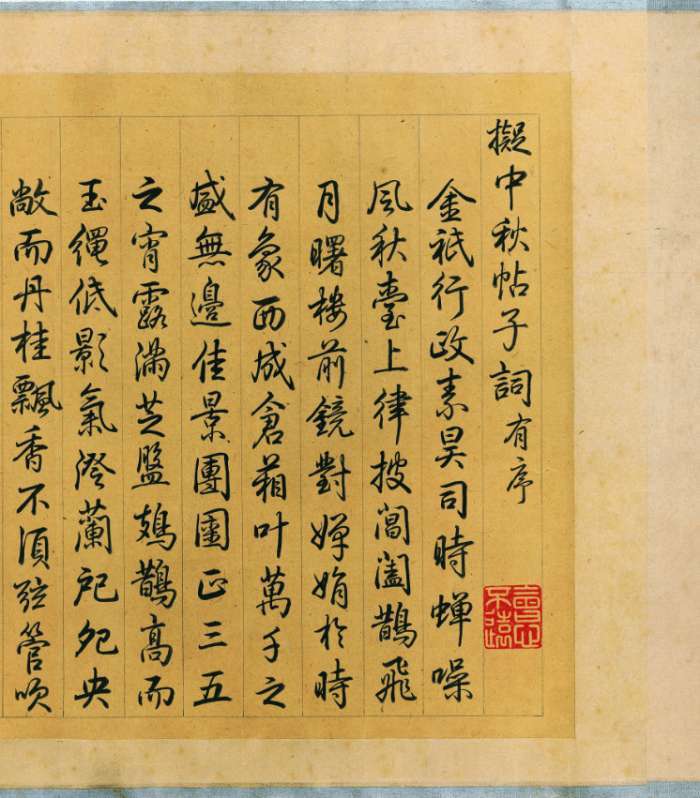 擬中秋帖子詞有序
會心不遠
金祇行政素昊司時蟬噪
風秋臺上律披閶闔鵲飛
月曙樓前鏡對嬋娟於時
有象西成倉箱叶萬千之
盛無邊佳景團圞正三五
之宵露滿芝盤鳷鵲高而
玉繩低影氣澄蘭戺夗央
敞而丹桂飄香不須弦管吹